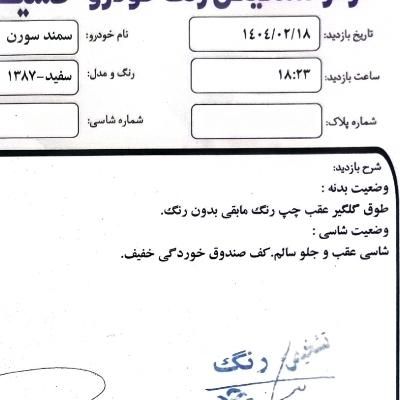 تاریخ بازدید: ۱۴۰۴/۰۲/۱۸ نام خودرو: سمند سورن
ساعت بازدید: ۱۸:۲۳ رنگ و مدل: سفید-۱۳۸۷
شماره پلاک: شماره شاسی:
شرح بازدید:
وضعیت بدنه :
طوق گلگیر عقب چپ رنگ مابقی بدون رنگ.
وضعیت شاسی :
شاسی عقب و جلو سالم.کف صندوق خوردگی خفیف.
تشخیص رنگ